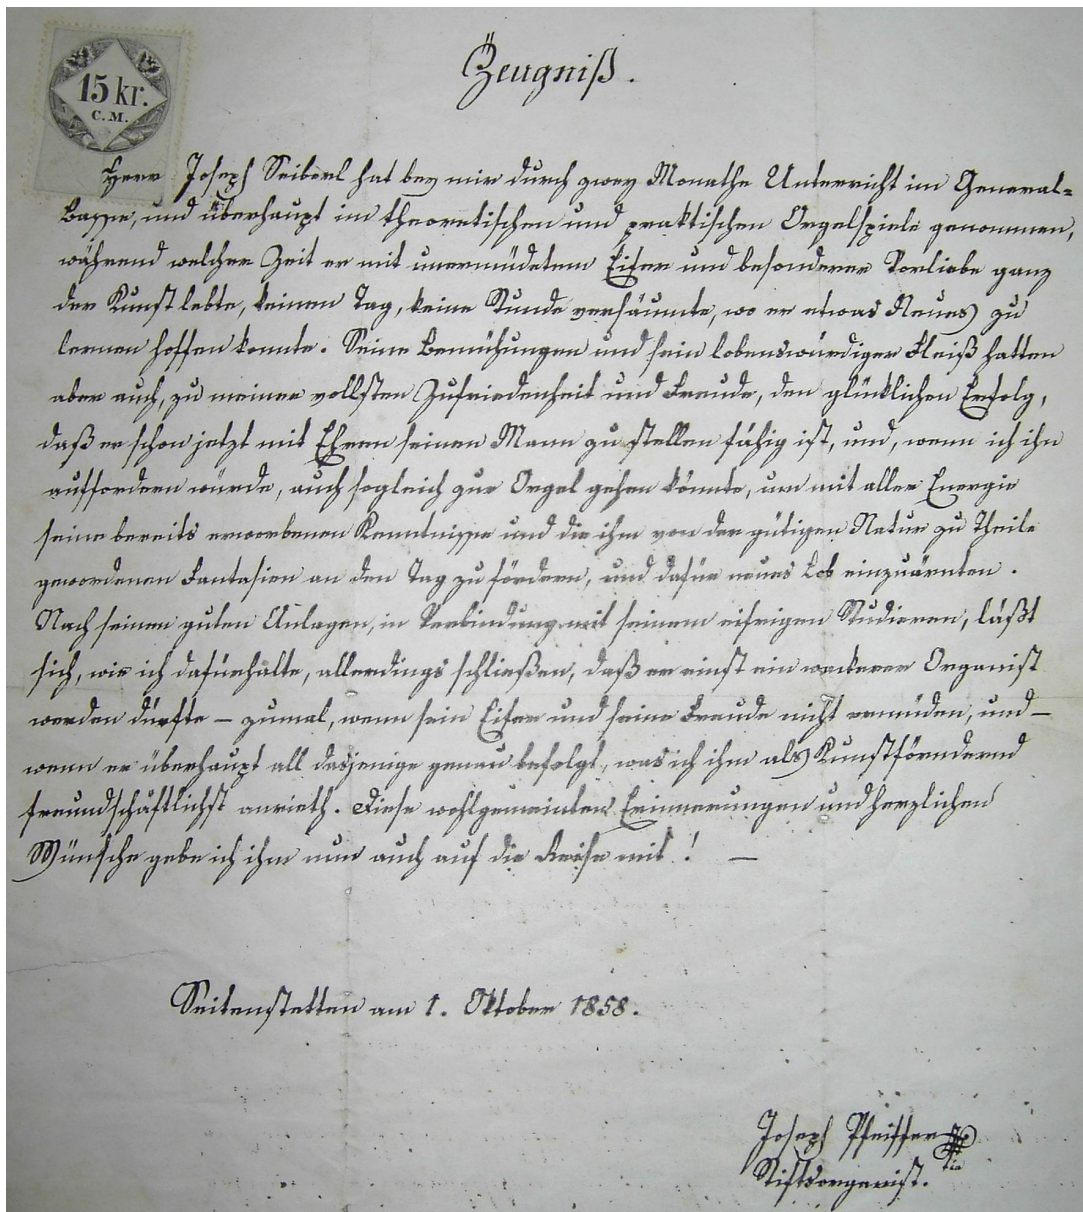 15 kr.
C.M.
Zeugniß.
Herr Joseph Seiberl hat bey mir durch zwey Monathe Unterricht im General-
Basse, und überhaupt im theoretischen und praktischen Orgelspiele genommen,
während welcher Zeit er mit unermüdetem Eifer und besonderer Vorliebe ganz
der Kunst lebte, keinen Tag, keine Stunde versäumte, wo er etwas Neues zu
lernen hoffen konnte. Seine Bemühungen und sein lobenswürdiger Fleiß hatten
aber auch, zu meiner vollsten Zufriedenheit und Freude, den glücklichen Erfolg,
daß er schon jetzt mit Ehren seinen Mann zu stellen fähig ist, und, wenn ich ihn
auffordern würde, auch sogleich zur Orgel gehen könnte, um mit aller Energie
seine bereits erworbenen Kenntnisse und die ihm von der gütigen Natur zu Theile
gewordenen Fantasien an den Tag zu fördern, und dafür neues Lob einzuärnten.
Nach seinen guten Anlagen, in Verbindung mit seinem eifrigen Studieren, läßt
sich, wie ich dafürhalte, allerdings schließen, daß er einst ein wackerer Organist
werden dürfte – zumal, wenn sein Eifer und seine Freude nicht ermüden, und –
wenn er überhaupt all dasjenige genau befolgt, was ich ihm als Kunstförndernd
freundschäftlichst anrieth. Diese wohlgemeinten Erinnerungen und herzlichen
Wünsche gebe ich ihm nun auch auf die Reise mit! —
Seitenstetten am 1. Oktober 1858.
Joseph Pfeiffer
Stiftsorganist.